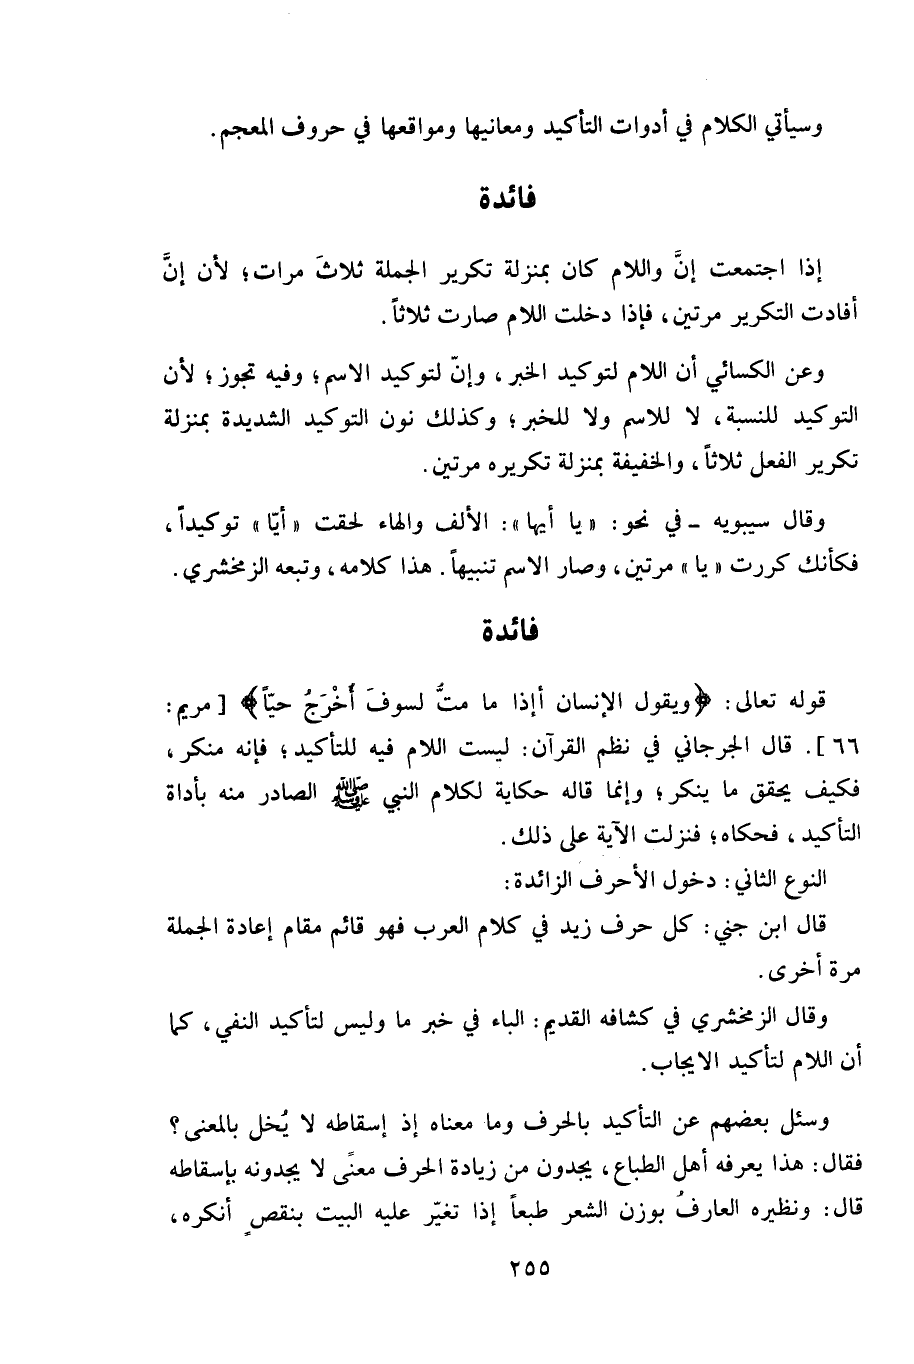 وسيأتي الكلام في أدوات التأكيد ومعانيها ومواقعها في حروف المعجم.
فائدة
إذا اجتمعت إنَّ واللام كان بمنزلة تكرير الجملة ثلاثَ مرات؛ لأن إنَّ
أفادت التكرير مرتين، فإذا دخلت اللام صارت ثلاثاً.
وعن الكسائي أن اللام لتوكيد الخبر، وإنّ لتوكيد الاسم؛ وفيه تجوز؛ لأن
التوكيد للنسبة، لا للاسم ولا للخبر؛ وكذلك نون التوكيد الشديدة بمنزلة
تكرير الفعل ثلاثاً، والخفيفة بمنزلة تكريره مرتين.
وقال سيبويه ـ في نحو: «يا أيها»: الألف والهاء لحقت «أيّا» توكيداً،
فكأنك كررت «يا» مرتين، وصار الاسم تنبيهاً. هذا كلامه، وتبعه الزمخشري.
فائدة
قوله تعالى: ﴿ويقول الإنسان أإذا ما متُّ لسوفَ أُخْرَجُ حيّاً﴾ [مريم:
٦٦]. قال الجرجاني في نظم القرآن: ليست اللام فيه للتأكيد؛ فإنه منكر،
فكيف يحقق ما ينكر؛ وإنما قاله حكاية لكلام النبي ﷺ الصادر منه بأداة
التأكيد، فحكاه؛ فنزلت الآية على ذلك.
النوع الثاني: دخول الأحرف الزائدة:
قال ابن جني: كل حرف زيد في كلام العرب فهو قائم مقام إعادة الجملة
مرة أخرى.
وقال الزمخشري في كشافه القديم: الباء في خبر ما وليس لتأكيد النفي، كما
أن اللام لتأكيد الايجاب.
وسئل بعضهم عن التأكيد بالحرف وما معناه إذ إسقاطه لا يُخل بالمعنى؟
فقال: هذا يعرفه أهل الطباع، يجدون من زيادة الحرف معنًى لا يجدونه بإسقاطه
قال: ونظيره العارفُ بوزن الشعر طبعاً إذا تغيّر عليه البيت بنقصٍ أنكره،
٢٥٥